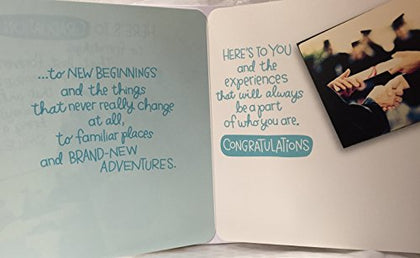 ...to NEW BEGINNINGS
and the things
that never really change
at all,
to familiar places
and BRAND-NEW
ADVENTURES.
HERE'S TO YOU
and the
experiences
that will always
be a part
of who you are.
CONGRATULATIONS